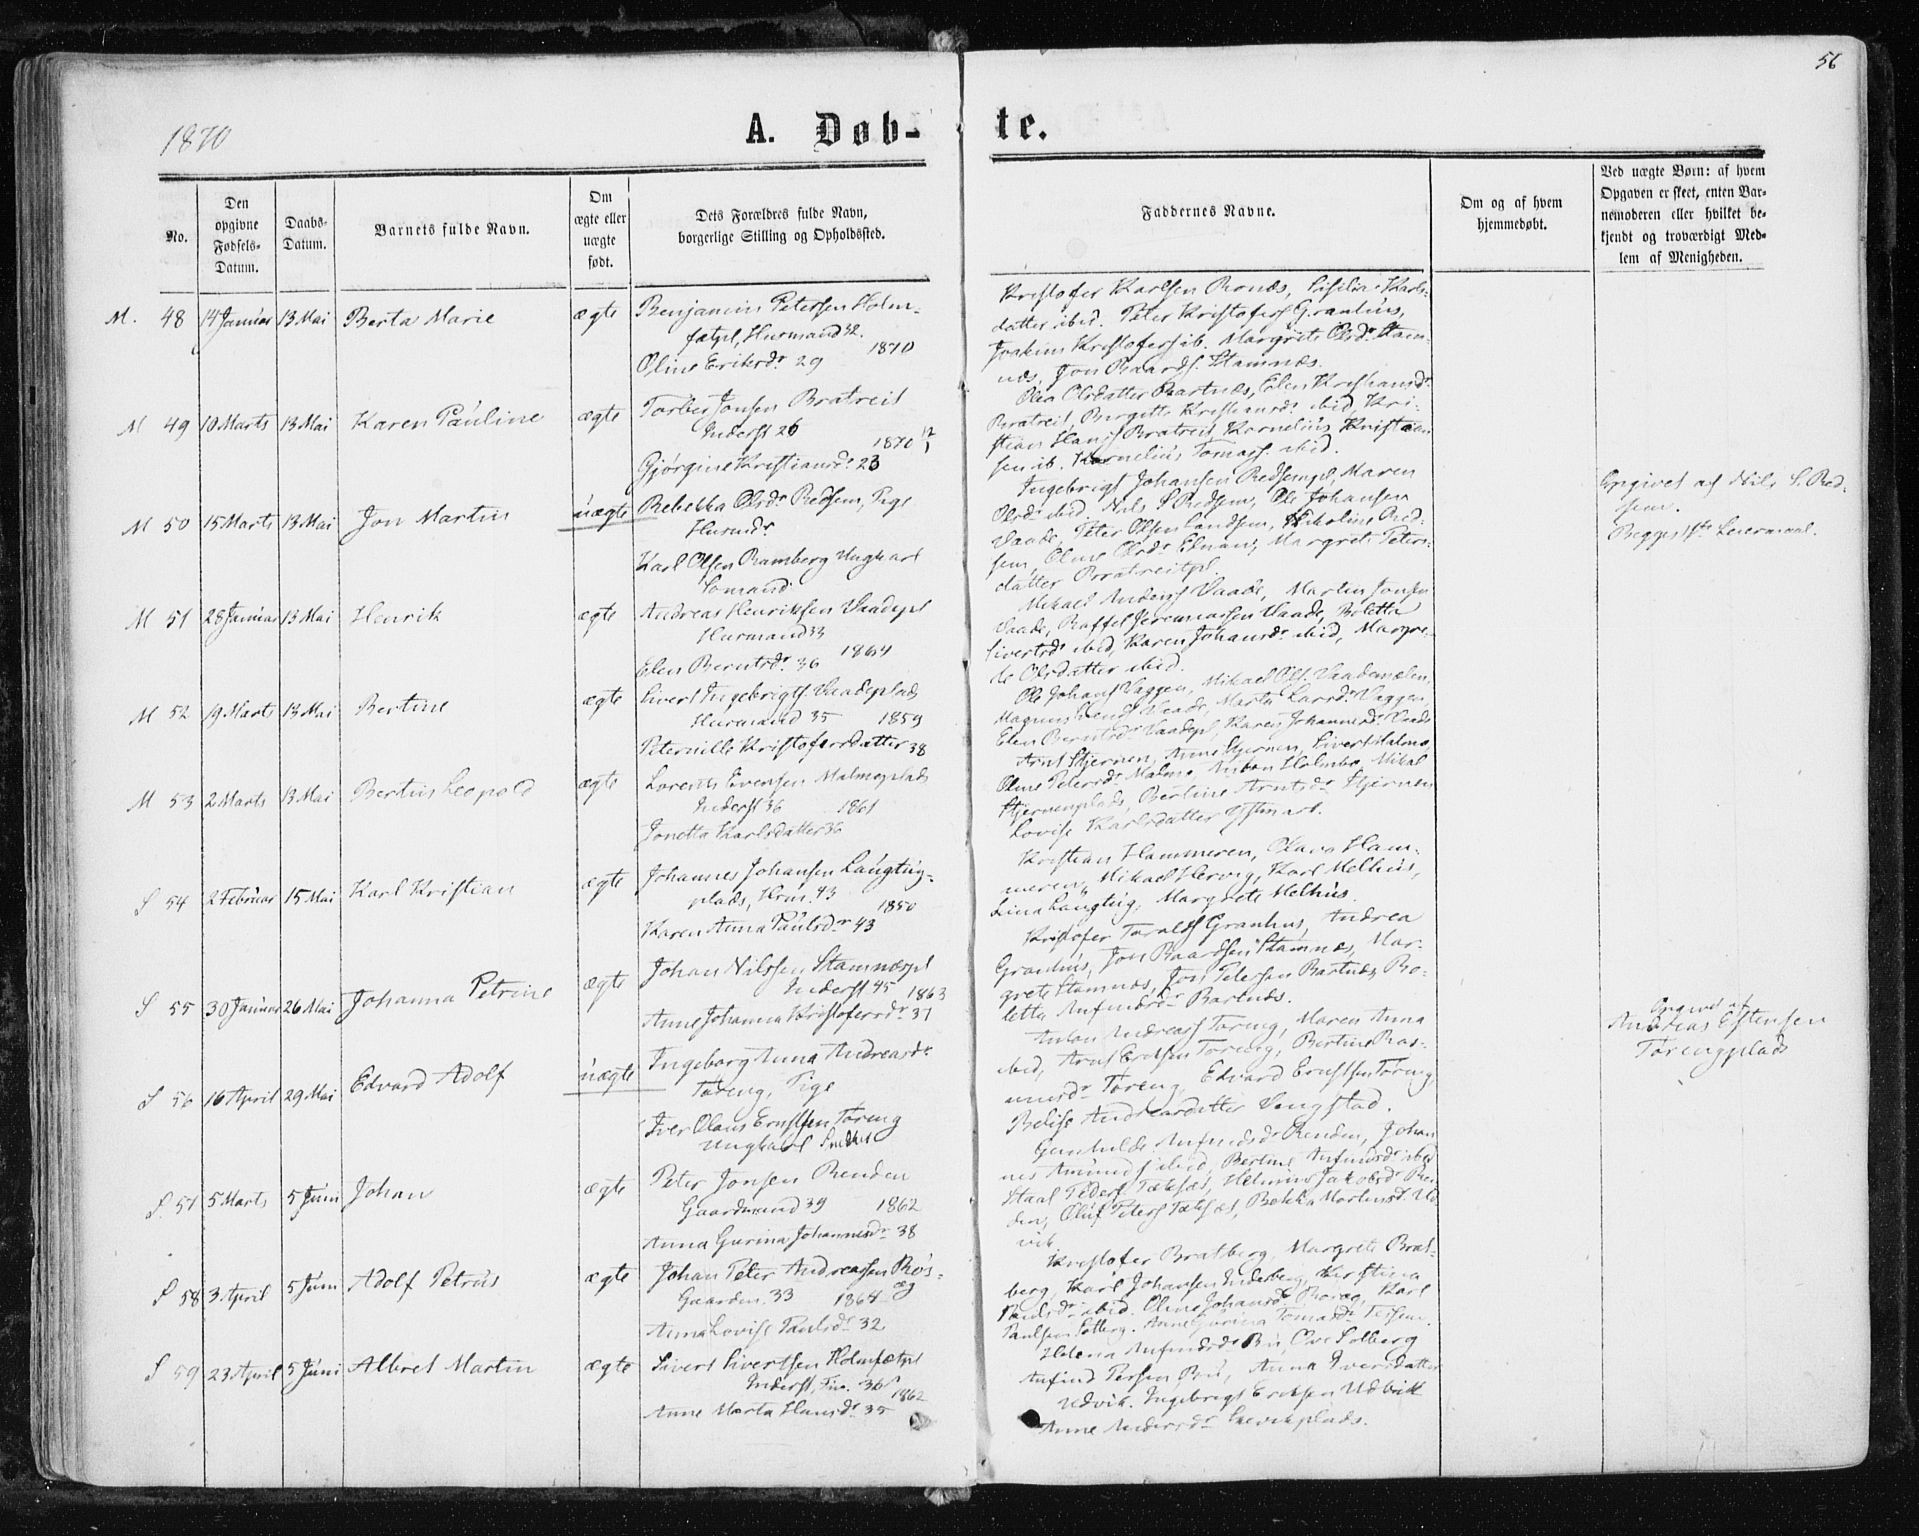 56
1870
A. Døb-
te.
No.
Den
opgivne
Fødsels-
Datum.
Daabs-
Datum.
Barnets fulde Navn.
Om
ægte eller
uægte
født.
Dets Forældres fulde Navn,
borgerlige Stilling og Opholdssted.
Faddernes Navne.
Om og af hvem
hjemmedøbt.
Ved uægte Børn: af hvem
Opgaven er skeet, enten Bar-
nemoderen eller hvilket be-
kjendt og troværdigt Med-
lem af Menigheden.
M. 48 14 Januar 13 Mai Berta Marie ægte
Benjamin Petersen Holm-
Husmand 32.
1870
Oline Eriksdr 29
Kristofer Karlsen
datter ibid. Peter Kristofers Granhus,
Joakim Kristofers ib. Margrete Olsdr Stam-
næs, Jon Baards. Stamnæs.
M 49 10 Marts 13 Mai Karen Pauline ægte
Torber Jonsen Bratreit
Inderst 26
1870
Gjørgine Kristiansdr 23
Olsdatter Bartnæs, Elen Kristiansdr
Bratreit, Birgitte Kristiansdr ibid, Kri-
stian Hans Bratreit, Kornelius Kristian-
sen ib. Kornelius Tomass. ibid.
M 50 15 Marts 13 Mai Jon Martin uægte
Rebekka Olsdr Redsem, Pige
Husmdr
Karl Olsen Ramberg Ungkarl
Somand
Ingebrigt Johansen Redsempl, Maren
Olsdr ibid. Nils S Redsem, Ole Johansen
Vaade, Peter Olsen Landsem, Nikoline Red-
sem, Oline Olsdr Ednan, Margrete Peters-
datter Bratreitpl.
Opgivet af Nils S. Red-
sem.
Begges 1ste Leiermaal.
M 51 28 Januar 13 Mai Henrik ægte
Andreas Henriksen Vaadepl
Husmand 33
1864
Elen Berntsdr 36
Mikael Anders Vaade, Martin Jonsen
Vaade, Raffel Jeremiassen Vaade, Boletta
Sivertsdr ibid, Karen Johansdr ibid, Margre-
te Olsdatter ibid.
M 52 19 Marts 13 Mai Bertine ægte
Sivert Ingebrigts Vaadeplads
Husmand 35 1859
Peternille Kristofersdatter 38
Ole Johans Vaggen, Mikael Ols.
Magnus Vaade, Marta Larsdr Vaggen,
Elen Berntsdr Vaadepl, Karen Johannesdr Vaade
M 53 2 Marts 13 Mai Bertus Leopold ægte
Lorents Evensen Malmoplads
Inderst 36 1861
Jonetta Karlsdatter 36
Arnt Stjernen, Anne Stjernen, Sivert Malmo,
Oline Petersdr Malmo, Anton Holmbo, Mikal
Stjernenplads, Bertine Arntsdr Stjernen
Lovise Karlsdatter
S 54 2 Februar 15 Mai Karl Kristian ægte
Johannes Johansen Langtug-
plads, Hsm. 43
1850
Karen Anna Paulsdr 43
Kristian Hammeren, Olava Ham-
meren, Mikael Hervig, Karl Melhus,
Lina Langtug, Margrete Melhus.
S 55 30 Januar 26 Mai Johanna Petrine ægte
Johan Nilssen Stamnæspl
Inderst 45 1863
Anne Johanna Kristofersdr 37
Kristofer Taralds Granhus, Andrea
Granhus, Jon Baardsen Stamnæs, Mar-
grete Stamnæs, Jon Petersen Bartnæs, Bo-
letta Anfindsdr Bartnæs.
S 56 16 April 29 Mai Edvard Adolf uægte
Ingeborg Anna Andreasdr
Tøreng, Pige
Iver Olaus Ernstsen Tøreng
Ungkarl Snedker
Anton Andreass Tøreng, Maren Anna
ibid, Arnt Eriksen Tøreng, Bertine Ras-
musdr Tøreng, Edvard Ernstsen Tøreng,
Belise Andreasdatter Vengstad.
Opgivet af
Andreas Estensen
Tørengplads
S. 57 5 Marts 5 Juni Johan ægte
Peter Jonsen Renden
Gaardmand 39 1862
Anna Gurina Johannesdr 38
Gunhilde Anfindsdr Renden, Johan-
nes Amunds ibid, Bertine Anfinsdr ibid
Staal Peders
den, Oluf Peters Bekka Martinsd. Ud-
vik
S 58 3 April 5 Juni Adolf Petrus ægte
Johan Peter Andreassen Ros-
æg
Gaardm. 33 1864
Anna Lovise Paulsdr 32
Kristofer Bratberg, Margrete Brat-
berg, Karl Johansen Inderberg, Kirstina
Paulsdr ibid. Oline Johansdr Karl
Paulsen Solberg. Anne Gurina Tomasdr
S 59 23 April 5 Juni Albret Martin ægte
Sivert Sivertsen
Inderst, 36
1862
Anne Marta Hansdr 35
Helena Anfindsdr Bu, Ove Solberg
Anfind Persen Bu, Anna Iversdatter
Udvik. Ingebrigt Eriksen Udvik
Anne Andersdr